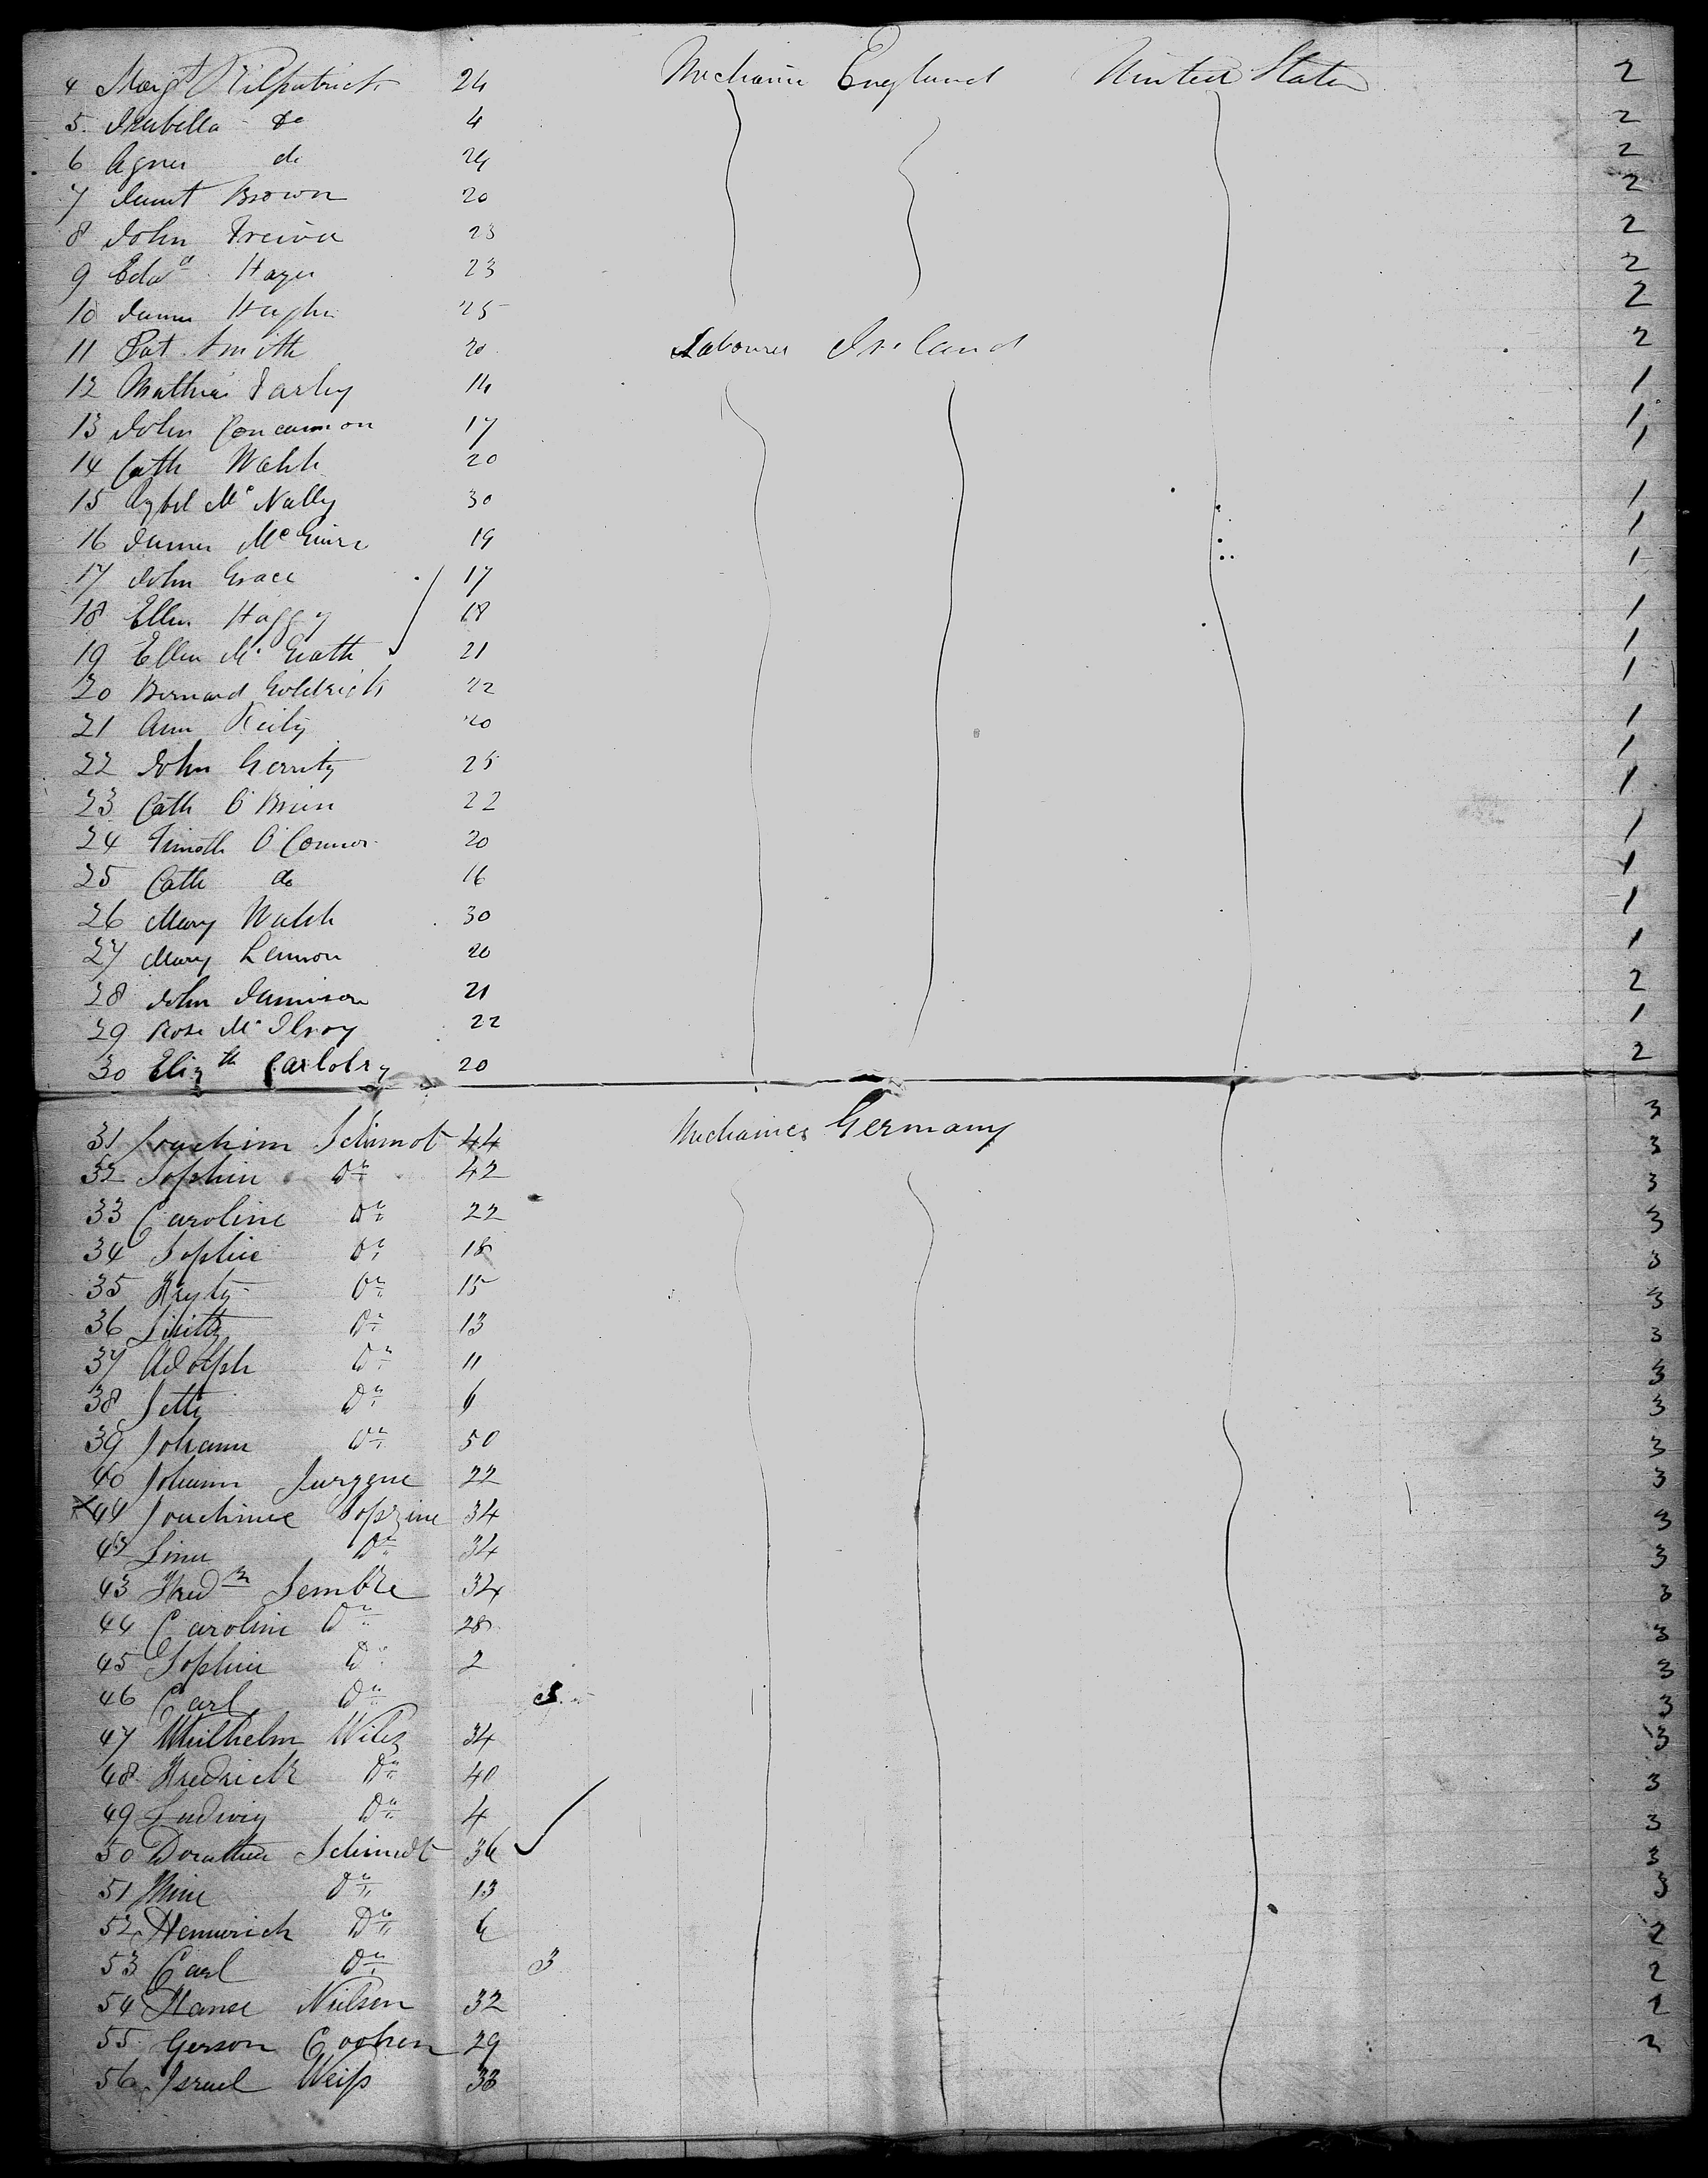 4 Margt Kilpatrick 24 Mechanic England United States 2
5 Isabella Do 4 2
6 Agnes do 24 2
7 Brown 20 2
8 John 23 2
9 Edwd Hayes 23 2
10 James Hughes 25 2
11 Pat Smith 20 Labourer Ireland 2
12 Mathew Farley 14 1
13 John Concannon 17 1
14 Cath Walsh 20 1
15 McNally 30 1
16 James McGuire 19 1
17 John Grace 17 1
18 Ellen Haggy 18 1
19 Ellen McGrath 21 1
20 Bernard Goldrick 22 1
21 Ann Reily 20 1
22 John Gerrity 25 1
23 Cath O'Brien 22 1
24 Timoth O'Connor 20 1
25 Cath do 16 1
26 Mary Walsh 30 1
27 Mary Lennon 20 1
28 John Jamison 21 2
29 Rose McIlroy 22 1
30 Elizth 20 2
31 Joachim Schimdt 44 Mechanics Germany 3
32 Sophia Do 42 3
33 Caroline Do 22 3
34 Sophie Do 18 3
35 Do 15 3
36 Do 13 3
37 Adolph Do 11 3
38 Jette Do 6 3
39 Johann Do 50 3
40 Johann Jurgene 22 3
44 34 3
42 Lina Do 34 3
43 Fredk Semble 32 3
44 Caroline Do 28 3
45 Sophia Do 2 3
46 Carl Do 3
47 Whilhelm 34 3
48 Fredrick Do 40 3
49 Ludwig Do 4 3
50 Dorathea Schimdt 36 3
51 Mine Do 13 3
52 Hennerich Do 6 2
53 Carl Do 3 2
54 Hanse Nielsen 32 2
55 Gerson Coohen 29 2
56 Israel Weiss 38